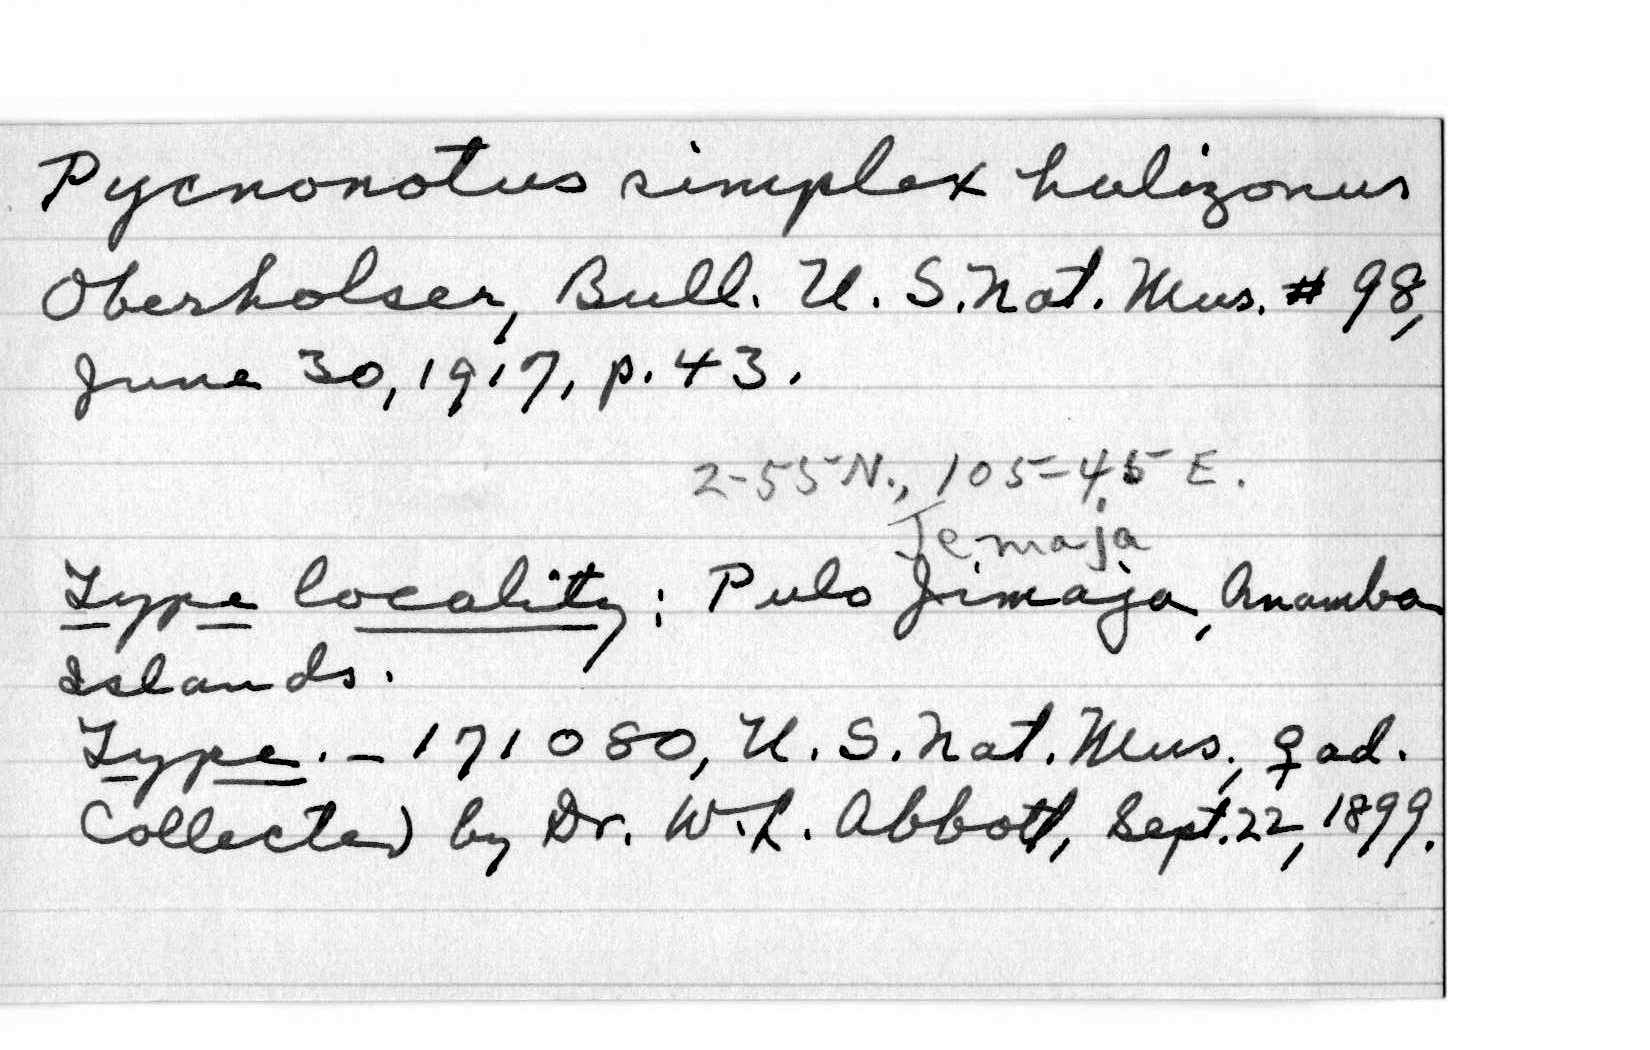 Pycnonotus simplex halizonus
Oberholser, Bull. U. S. Nat. Mus. # 98,
June 30, 1917, p. 43.
2-55 N., 105-45 E.
Jemaja
Type locality: Pulo Jimaja, Anamba
Islands.
Type. - 171080, U. S. Nat. Mus., ♀ ad.
Collected by Dr. W. L. Abbott, Sept. 22, 1899.